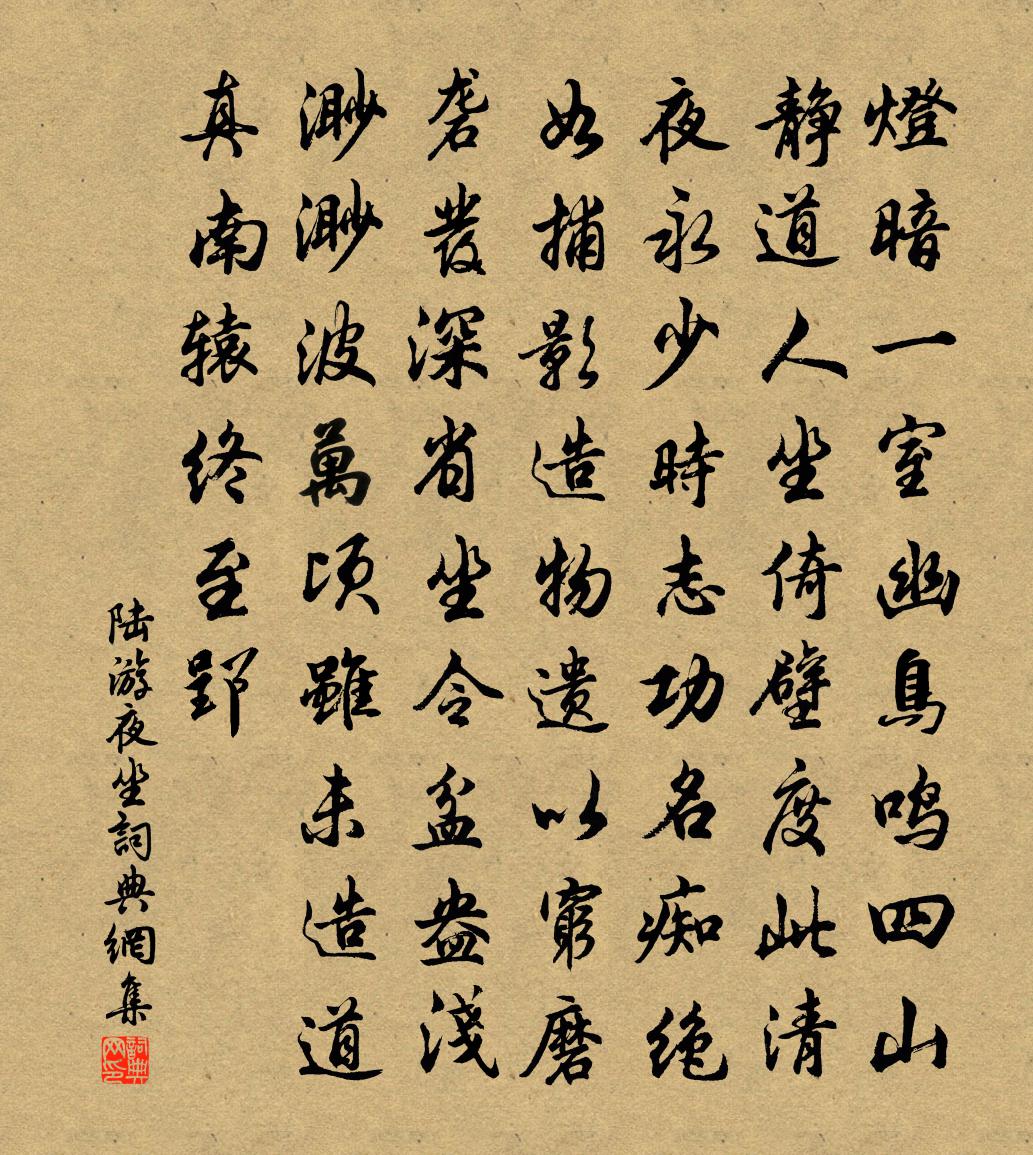 燈暗一室幽鳥鸣四山
静道人坐倚壁度此清
夜永少時志功名痴绝
如捕影造物遗以窮磨
砻發深省坐令盆盎淺
渺渺波萬顷雖未造道
真南辕终至郢
陆游夜坐詞典網集
詞典网印